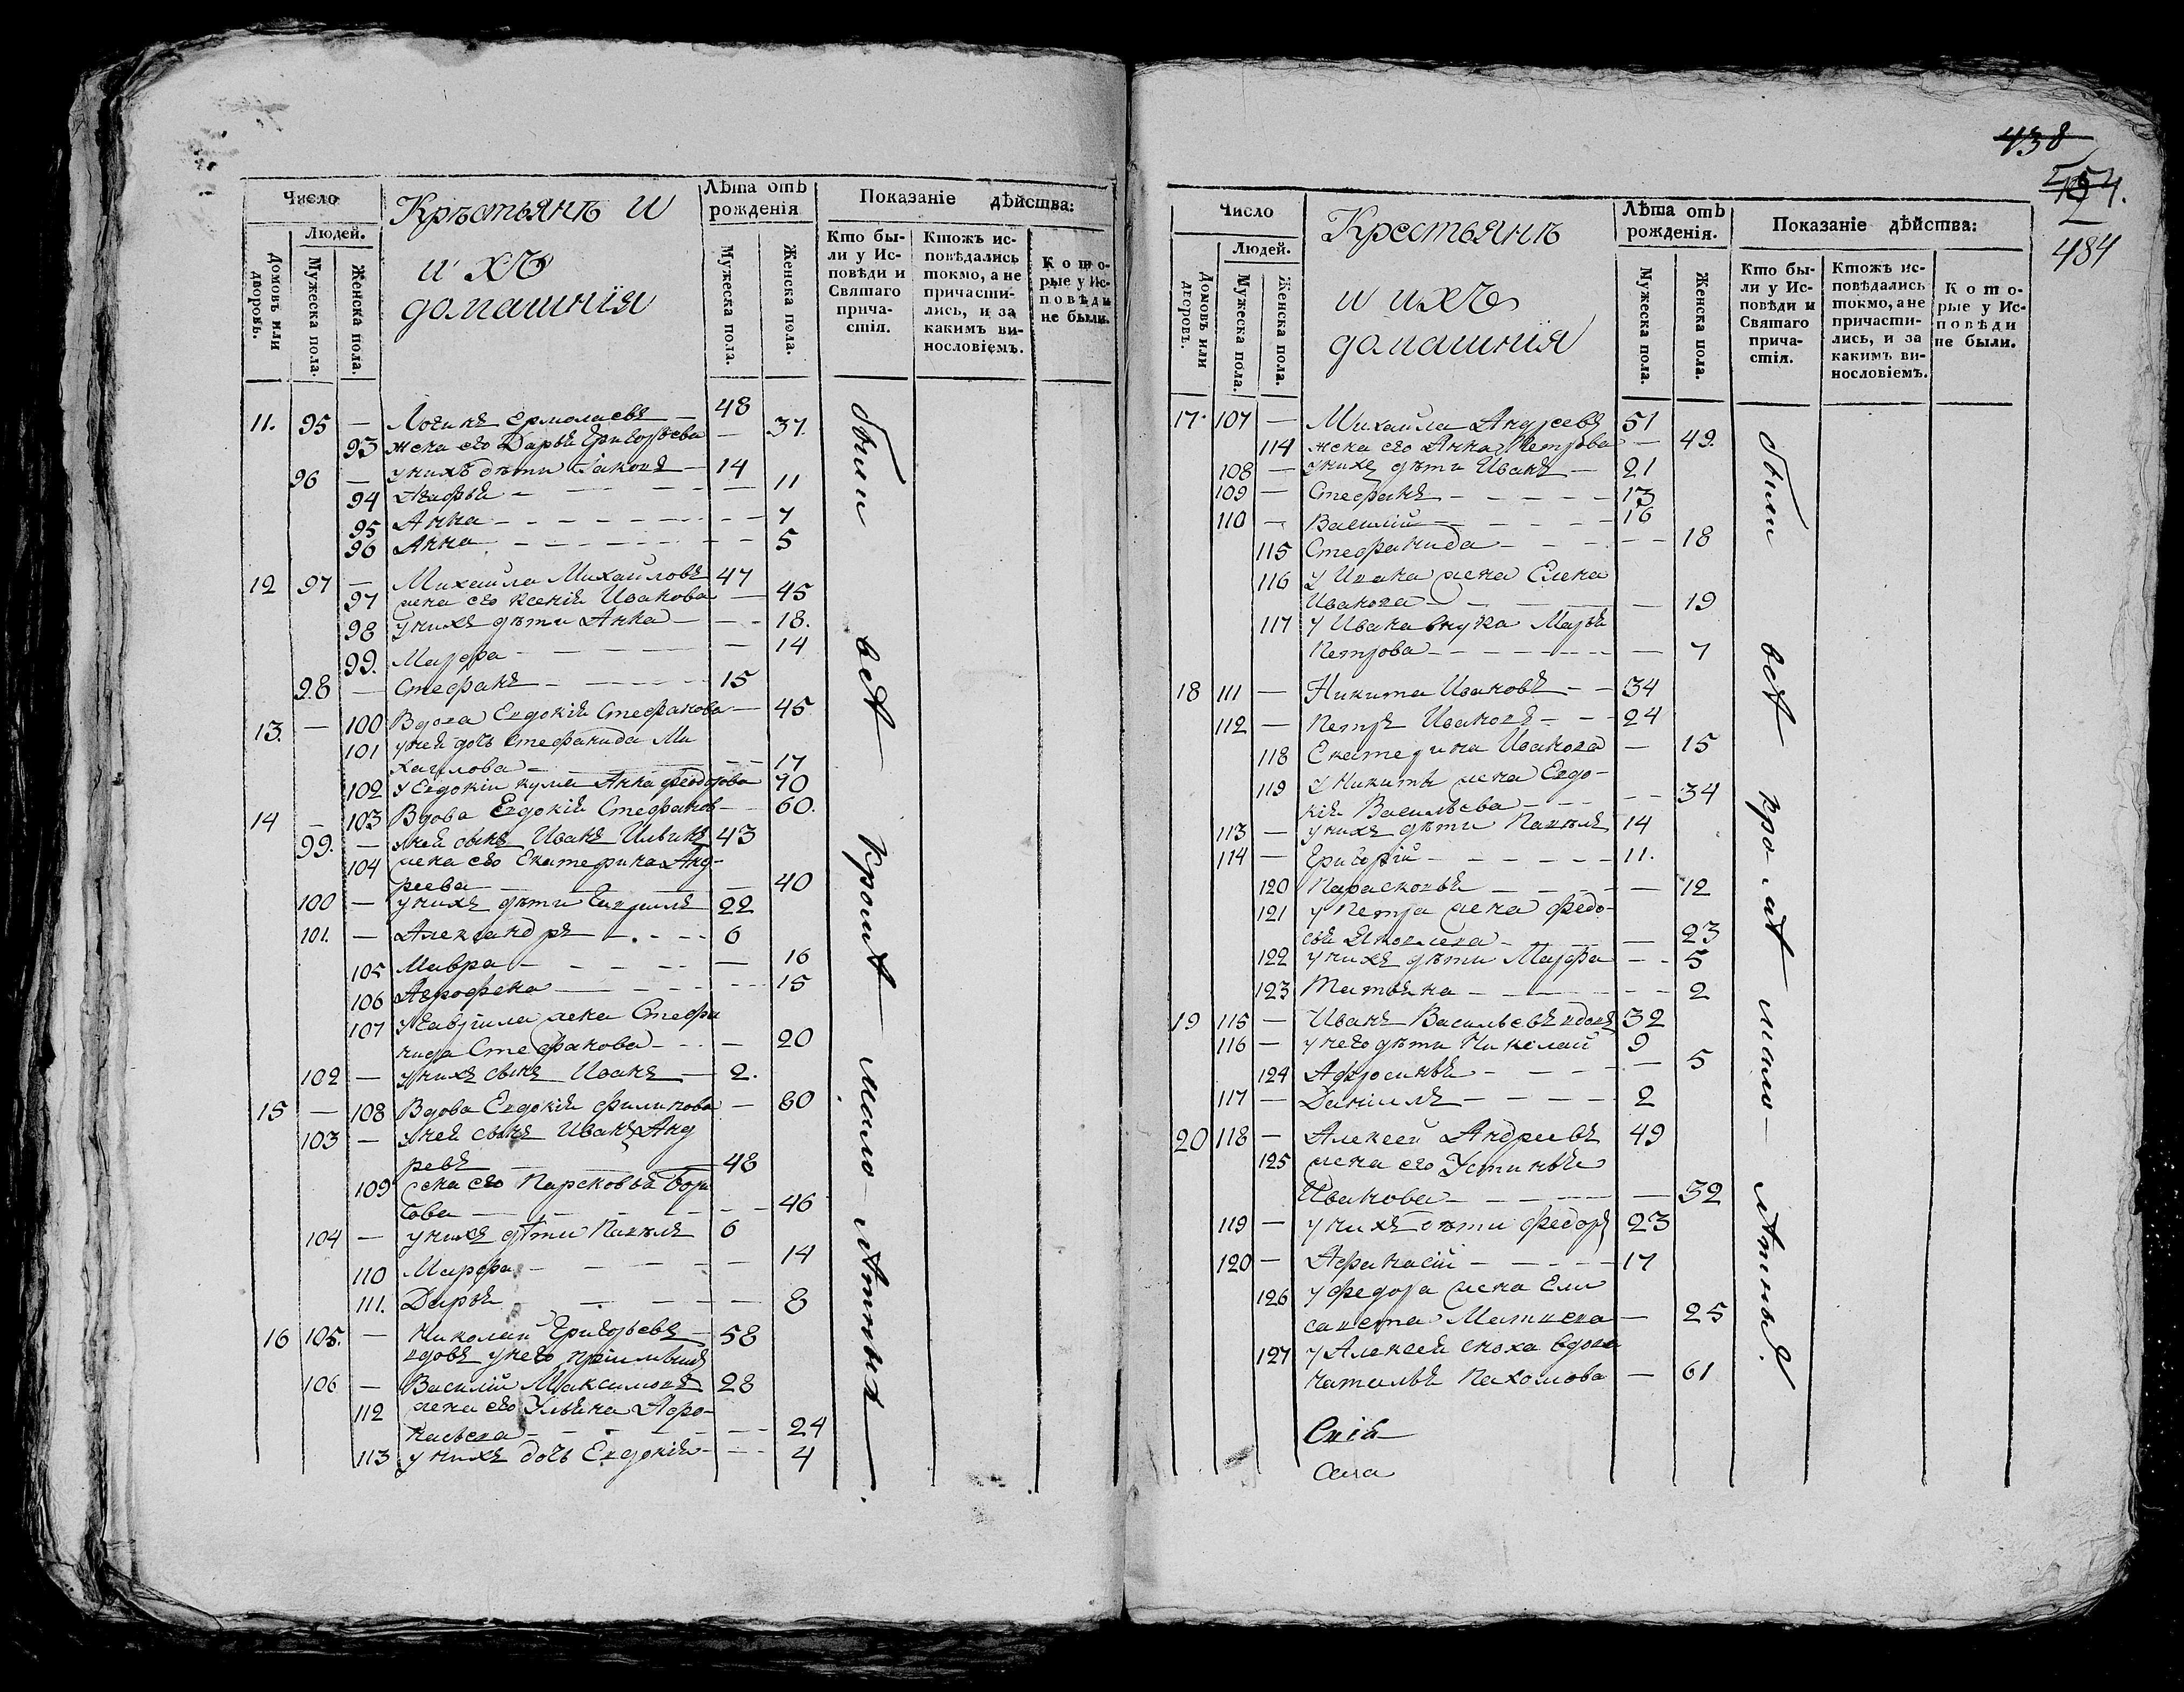 Число
Людей.
Домовъ или дворовъ.
Мужеска пола.
Женска пола.
Кръстьянъ и
ихъ
домашнія
Лѣта отъ рожденія
Мужеска пола.
Женска пола.
Показаніе дѣйства:
Кто бы-
ли у Ис-
повѣди и
Святаго
прича-
стія.
Ктожъ ис-
повѣдались
токмо, а не
причасти-
лись, и за
какимъ ви-
нословіемъ.
Кото-
рые у Ис-
повѣди
не были.
11. 95 — Ермолаевъ — 48
93 жена его Дарья Григорьева — 37.
96 — у нихъ дѣти Іаковъ — 14
94 — 11
95 Анна — 7
96 Анна — 5
12 97 — Михайла Михайловъ 47
97 жена его Ксенія Иванова — 45
98 у нихъ дѣти Анна — 18.
99. Марфа — 14
98 — Стефанъ — 15
13. — 100 Вдова Евдокія Стефанова — 45
101 у ней дочь Стефанида Ми
хаилова — 17
102 у Евдокіи Анна Феодорова 70
14 — 103 Вдова Евдокія Стефанов — 60.
99. — у ней сынъ Иванъ 43
104 жена его Екатерина Анд-
реева — 40
100 — у нихъ дѣти Гавриилъ 22
101. — Александръ — 6
105 Мавра — 16
106 — 15
107 у Гавріила жена Стефа
нида Стефанова — 20
102 — у нихъ сынъ Иванъ — 2.
15 — 108 Вдова Евдокія Филипова — 80
103 — у ней сынъ Иванъ Анд
ревъ — 48
109 жена его Парсковья Бори
сова — 46
104 — у нихъ дѣти Павелъ 6
110 Марфа — 14
111. Дарья — 8
16 105. — Николай Григорьевъ — 58
вдовъ у него
106 — Василій Максимовъ 28
112 жена его Ульяна Афо-
насьева — 24
113 у нихъ дочь Евдокія — 4
были всѣ кромѣ мало-лѣтныхъ.
438
484
Число
Людей.
Домовъ или дворовъ.
Мужеска пола.
Женска пола.
Крестьянъ
и ихъ
домашнія
Лѣта отъ рожденія.
Мужеска пола.
Женска пола.
Показаніе дѣйства:
Кто бы-
ли у Ис-
повѣди и
Святаго
прича-
стія.
Ктожъ ис-
повѣдались
токмо, а не
причасти-
лись, и за
какимъ ви-
нословіемъ.
Кото-
рые у Ис-
повѣди
не были.
17. 107 — Михайла Андреевъ 51
114 жена его Анна Петрова — 49.
108 — у нихъ дѣти Иванъ — 21
109 — Стефанъ — 13
110 — Василій — 16
115 Стефанида — 18
116 у Ивана жена Елена
Иванова — 19
117 у Ивана внука Марья
Петрова — 7
18 111 — Никита Ивановъ — 34
112 — Петръ Ивановъ — 24
118 Екатерина Иванова — 15
119 у Никиты жена Евдо-
кія Васильева — 34
113 — у нихъ дѣти Павелъ 14
114 — Григорій — 11.
120 Парасковья — 12
121 у Петра жена Федо-
сья Яковлева — 23
122 у нихъ дѣти Марфа — 5
123 Татьяна — 2
19 115 — Иванъ Васильевъ вдовъ 32
116 — у него дѣти Николай 9
124 Афросинья — 5
117 — Даніилъ — 2
20 118 — Алексей Андреевъ 49
125 жена его Устинья
Иванова — 32
119 — у нихъ дѣти Федоръ 23
120 — Афанасій — 17
126 у Федора жена Ели
савета Матвеева — 25
127 у Алексея сноха вдова
Наталья Пахомова — 61
были всѣ кро-мѣ мало-лѣтныхъ.